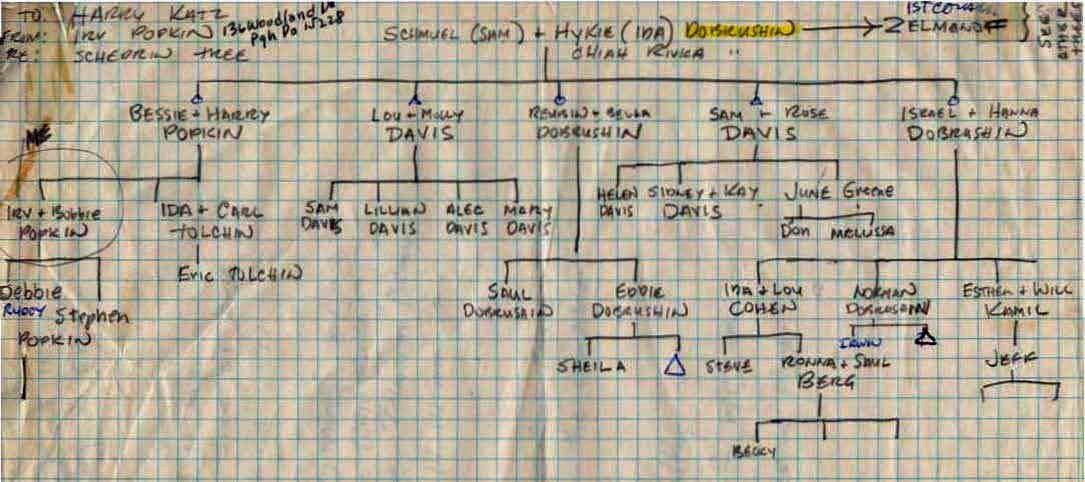 TO: HARRY KATZ
FROM: IRV POPKIN 136 Woodland
RE: SCHEDRIN TREE
SCHMUEL (SAM) + HYKIE (IDA) DOBRUSHIN → ZELMAN
CHIAH RIVKA "
BESSIE + HARRY
POPKIN
LOU + MOLLY
DAVIS
REUBIN + BELLA
DOBRUSHIN
SAM + ROSE
DAVIS
ISRAEL + HANNA
DOBRUSHIN
ME
IRV + Bobbie
POPKIN
IDA + CARL
TOLCHIN
SAM
DAVIS
LILLIAN
DAVIS
ALEC
DAVIS
MARY
DAVIS
HELEN
DAVIS
SIDNEY + KAY
DAVIS
JUNE Greene
Don MELUSSA
Eric TOLCHIN
Debbie
Stephen
POPKIN
SAUL
DOBRUSHIN
EDDIE
DOBRUSHIN
IDA + LOU
COHEN
NORMAN
DOBRUSHIN
ESTHER + WILL
KAMIL
SHEILA
STEVE
RONNA + SAUL
BERG
IRWIN
JEFF
BECKY